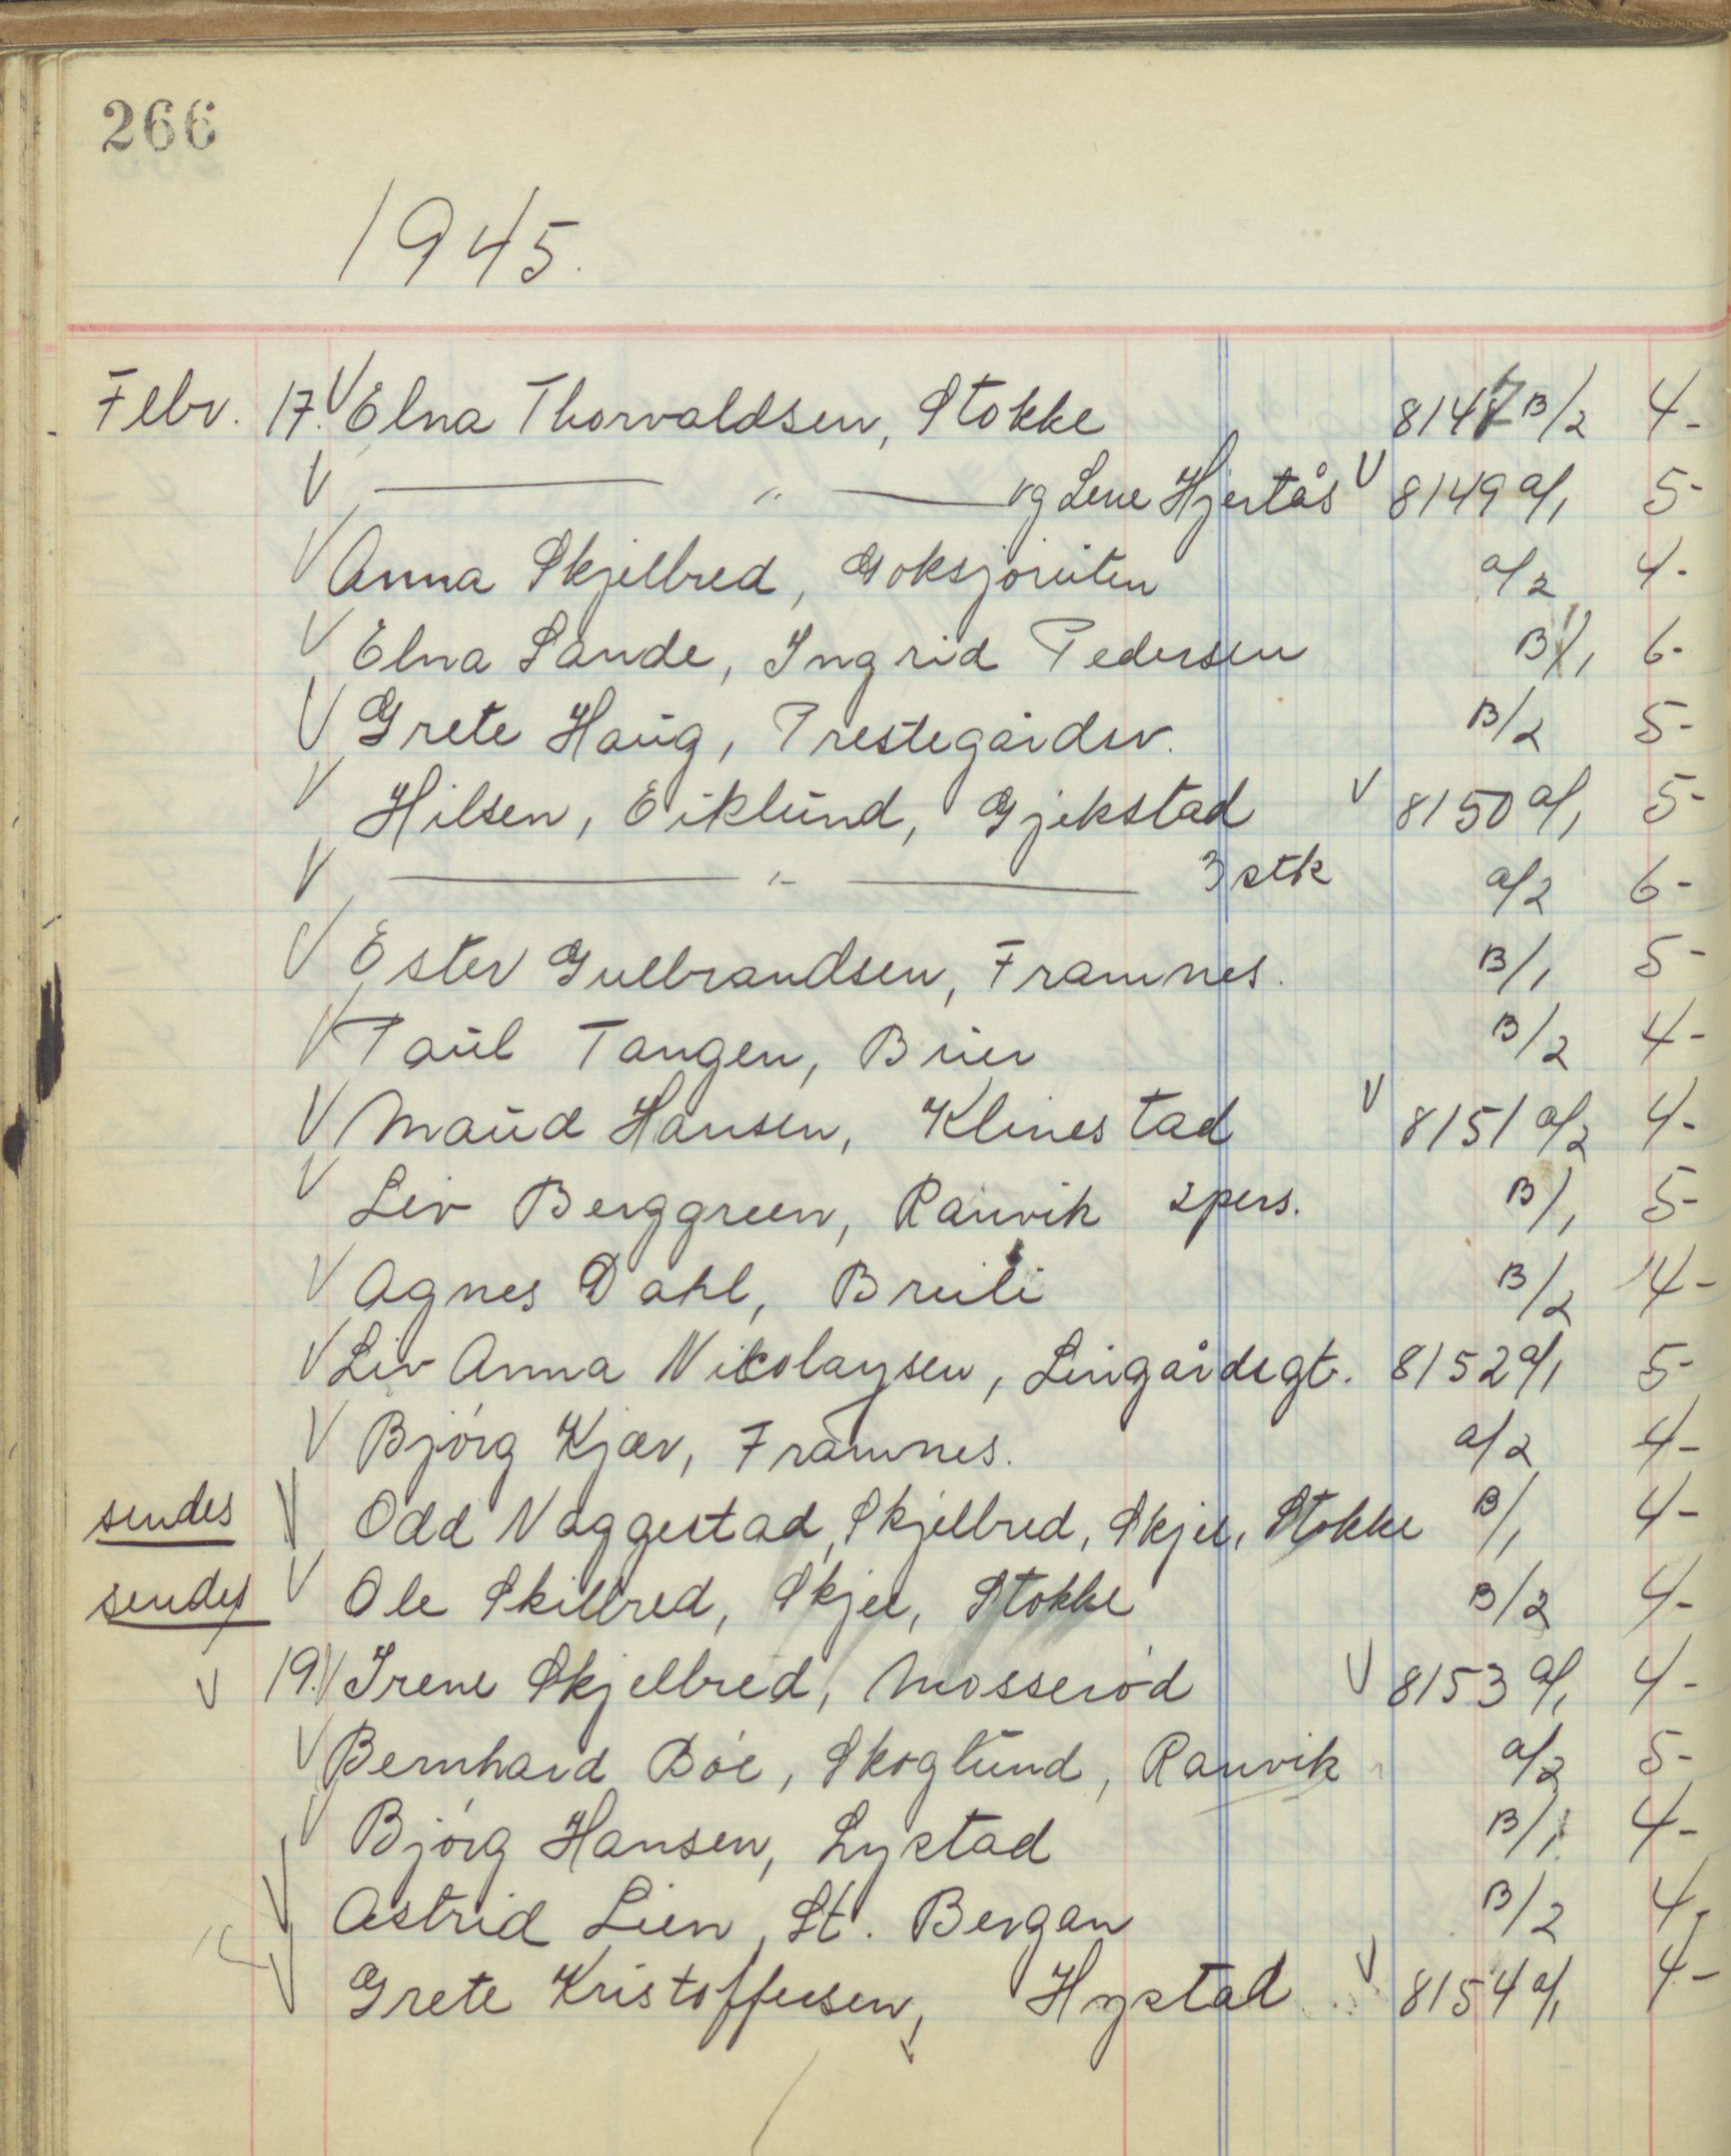 266
1945.
Febr. 17. V Elna Thorvaldsen, Stokke 8147 B/2 4-
V —— " —— og Lene Hjertås V 8149 a/1 5-
V Anna Skjelbred, Goksjøruten a/2 4-
V Elna Sande, Ingrid Pedersen B/1 6-
V Grete Haug, Prestegårdsv. B/2 5-
V Hilsen, Eiklund, Gjekstad V 8150 a/1 5-
V —— " —— 3 stk a/2 6-
V Ester Gulbrandsen, Framnes. B/1 5-
V Paul Tangen, Buer B/2 4-
V Maud Hansen, Klinestad V 8151 a/2 4-
V Liv Berggreen, Ranvik 2 pers. B/1 5-
V Agnes Dahl, Breili B/2 4-
V Liv Anna Nikolaysen, Lingårdsgt. 8152 a/1 5-
V Bjørg Kjær, Framnes. a/2 4-
sendes V Odd Vaggestad, Skjelbred, Skjee, Stokke B/1 4-
sendes V Ole Skillred, Skjee, Stokke B/2 4-
V 19. V Irene Skjelbred, Mosserød V 8153 a/1 4-
V Bernhard Bøe, Skoglund, Ranvik a/2 5-
V Bjørg Hansen, Lystad B/1 4-
V Astrid Lien, St. Bergan B/2 4-
V Grete Kristoffersen, Hystad V 8154 a/1 4-